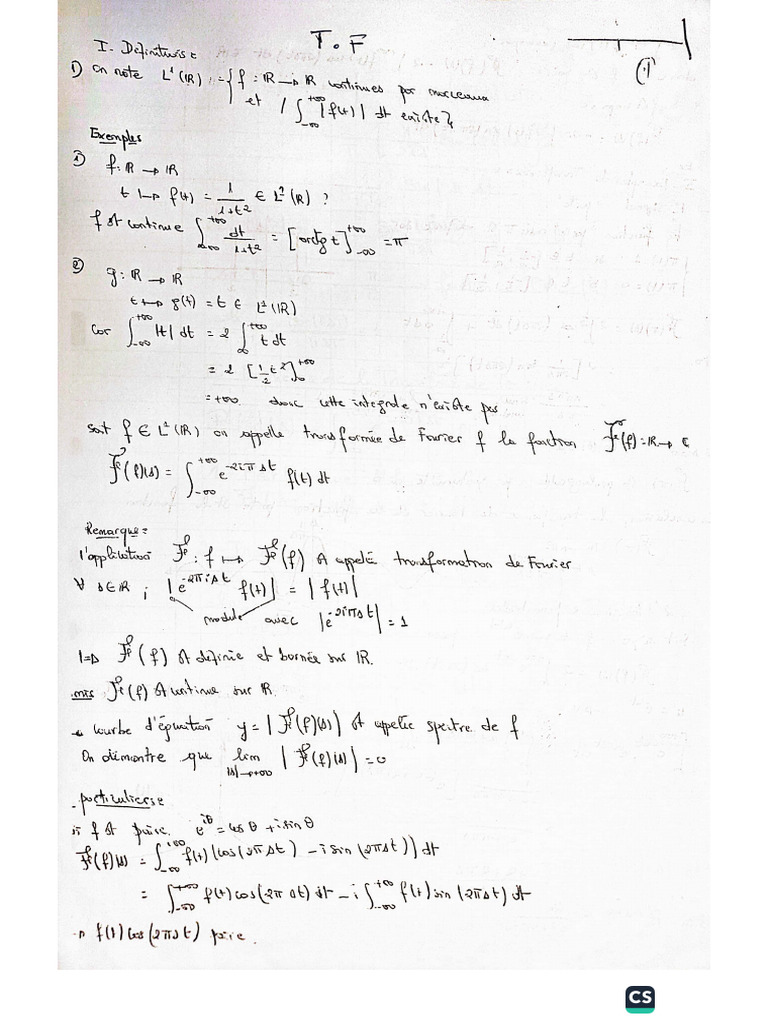 T.F
(1)
I- Définitions :
1) On note L¹(ℝ) := { f : ℝ → ℝ continues par morceaux
et / ∫_{-∞}^{+∞} |f(t)| dt existe }
Exemples
1) f : ℝ → ℝ
t ↦ f(t) = 1/(1+t²) ∈ L¹(ℝ) ?
f est continue ∫_{-∞}^{+∞} dt/(1+t²) = [arctg t]_{-∞}^{+∞} = π
2) g : ℝ → ℝ
t ↦ g(t) = t ∈ L¹(ℝ)
Car ∫_{-∞}^{+∞} |t| dt = 2 ∫_{0}^{+∞} t dt
= 2 [1/2 t²]_{0}^{+∞}
= +∞ donc cette integrale n'existe pas
soit f ∈ L¹(ℝ) on appelle transformée de Fourier f la fonction ℱ(f) : ℝ → ℂ
ℱ(f)(s) = ∫_{-∞}^{+∞} e^{-2iπst} f(t) dt
Remarque :
l'application ℱ : f ↦ ℱ(f) est appelé transformation de Fourier
∀ s ∈ ℝ ; |e^{-2πist} f(t)| = |f(t)|
module avec |e^{-2iπst}| = 1
1⇒ ℱ(f) est définie et bornée sur ℝ.
mis ℱ(f) est continue sur ℝ.
courbe d'équation y = |ℱ(f)(s)| est appelée spectre de f
On démontre que lim_{|s|→+∞} |ℱ(f)(s)| = 0
f est paire e^{iθ} = cos θ + i sin θ
ℱ(f)(s) = ∫_{-∞}^{+∞} f(t) (cos(2πst) - i sin(2πst)) dt
= ∫_{-∞}^{+∞} f(t) cos(2πst) dt - i ∫_{-∞}^{+∞} f(t) sin(2πst) dt
f(t) cos(2πst) paire.
CS